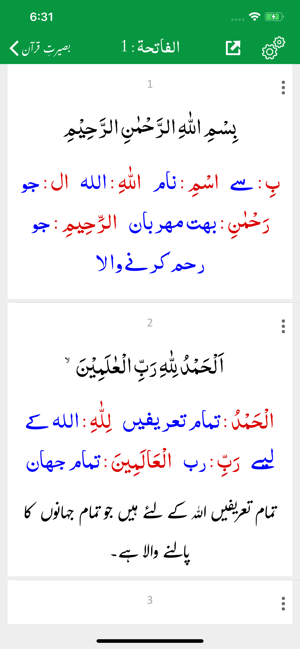 6:31
بصیرتِ قرآن
الفاتحة : 1
1
بِسْمِ اللهِ الرَّحْمٰنِ الرَّحِيْمِ
بِ : سے اسْمِ : نام اللهِ : الله ال : جو
رَحْمٰنِ : بہت مہربان الرَّحِيمِ : جو
رحم کرنے والا
2
اَلْحَمْدُ لِلّٰهِ رَبِّ الْعٰلَمِيْنَ ۙ
الْحَمْدُ : تمام تعریفیں لِلّٰهِ : الله کے
لیے رَبِّ : رب الْعَالَمِينَ : تمام جهان
تمام تعریفیں اللہ کے لئے ہیں جو تمام جہانوں کا
پالنے والا ہے۔
3